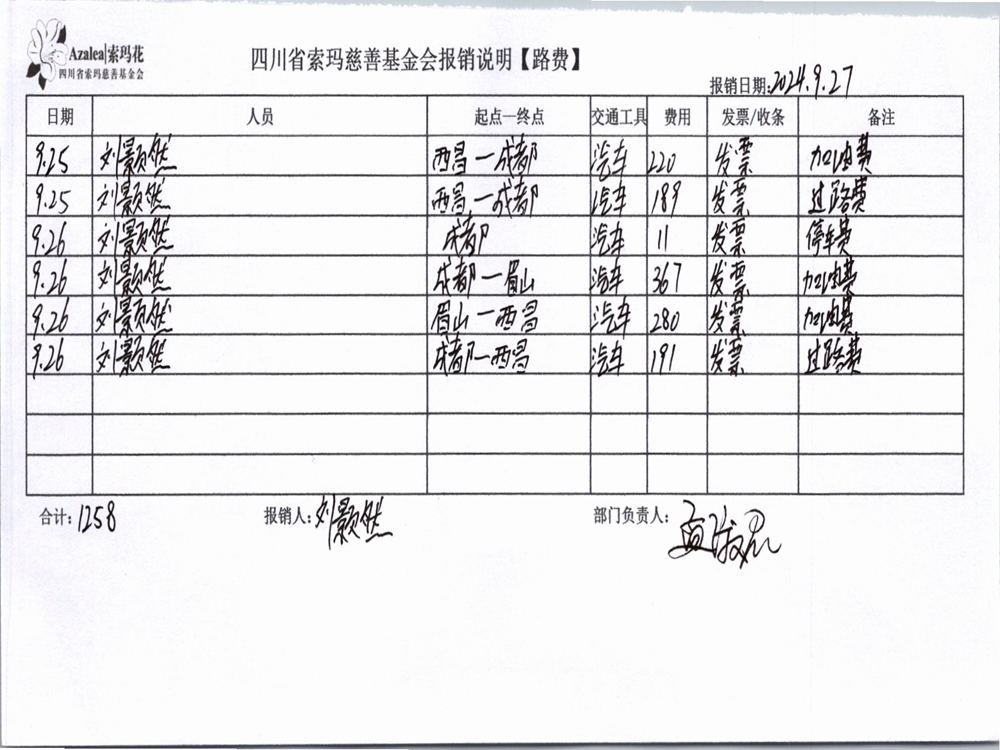 Azalea|索玛花
四川省索玛慈善基金会
四川省索玛慈善基金会报销说明【路费】
报销日期:2024.9.27
日期 人员 起点—终点 交通工具 费用 发票/收条 备注
9.25 刘颢然 西昌—成都 汽车 220 发票 加油费
9.25 刘颢然 西昌—成都 汽车 189 发票 过路费
9.26 刘颢然 成都 汽车 11 发票 停车费
9.26 刘颢然 成都—眉山 汽车 367 发票 加油费
9.26 刘颢然 眉山—西昌 汽车 280 发票 加油费
9.26 刘颢然 成都—西昌 汽车 191 发票 过路费
合计:1258 报销人:刘颢然 部门负责人: